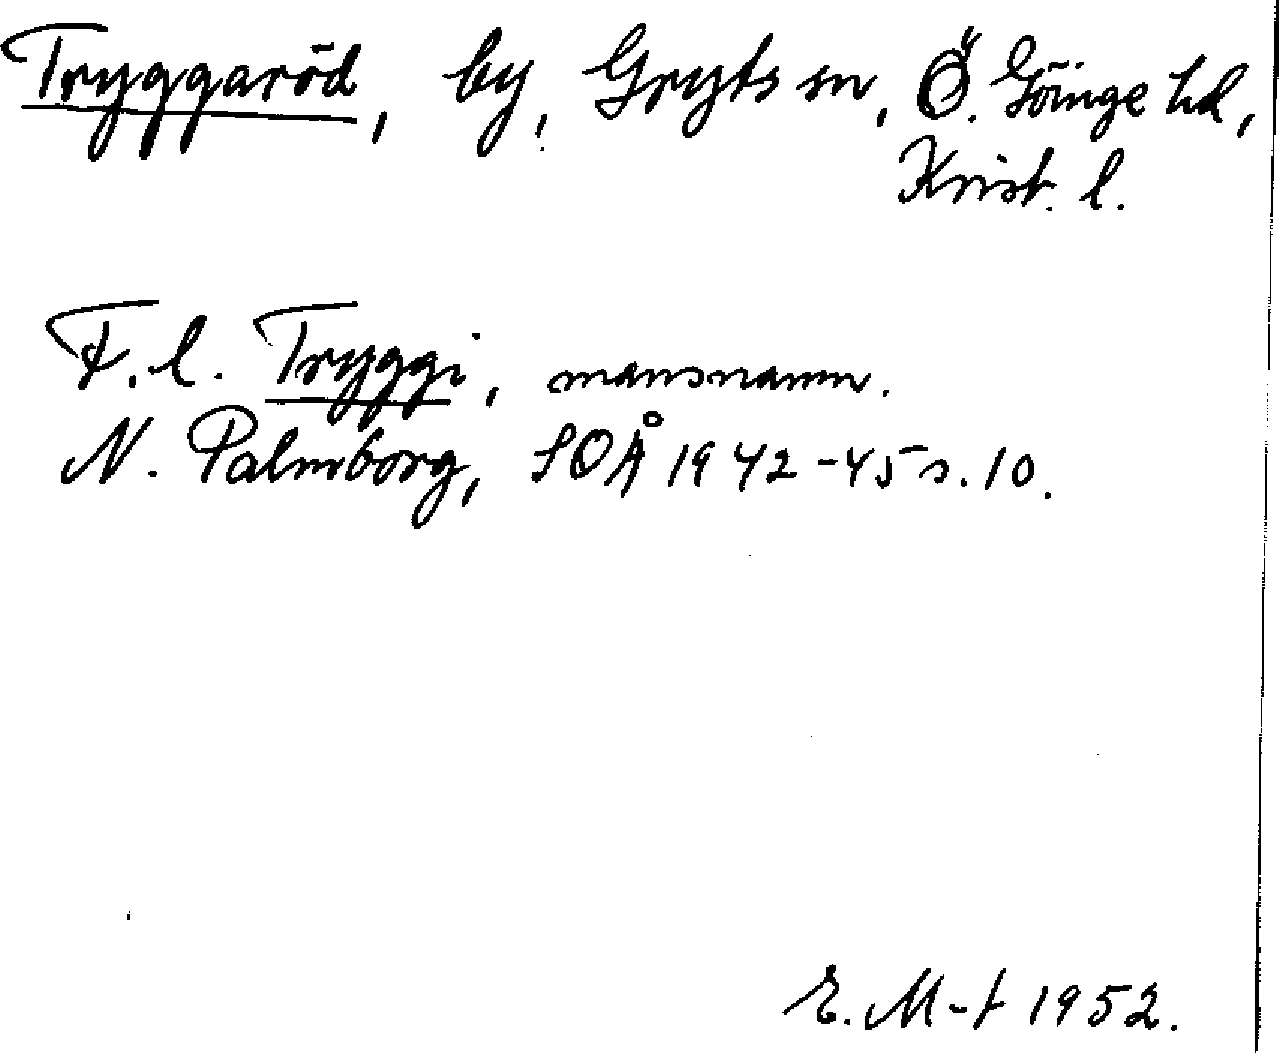 Tryggaröd, by, Gryts sn, Ö. Göinge hd,
Krist. l.
F. l. Tryggi, mansnamn.
N. Palmborg, SOÅ 1942-45 s. 10.
E. M-t 1952.